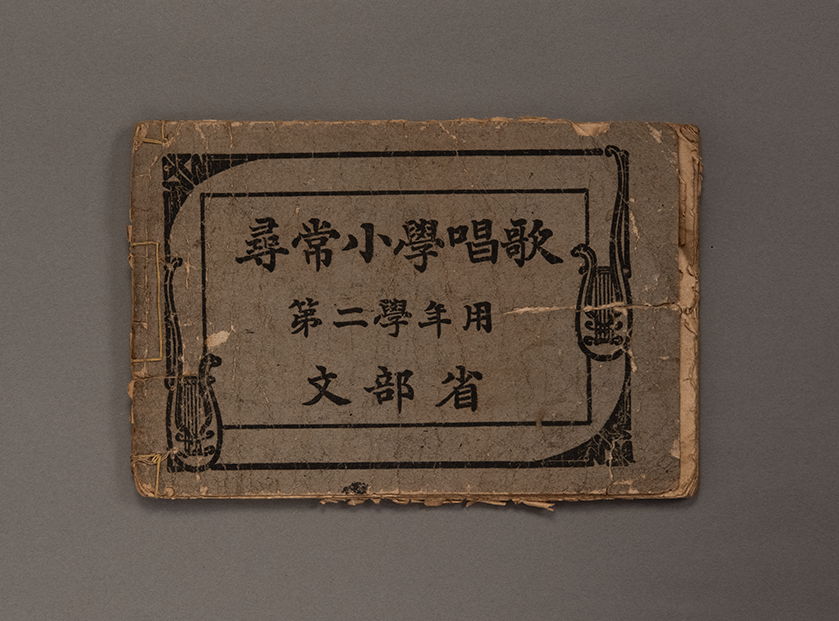 尋常小學唱歌
第二學年用
文部省